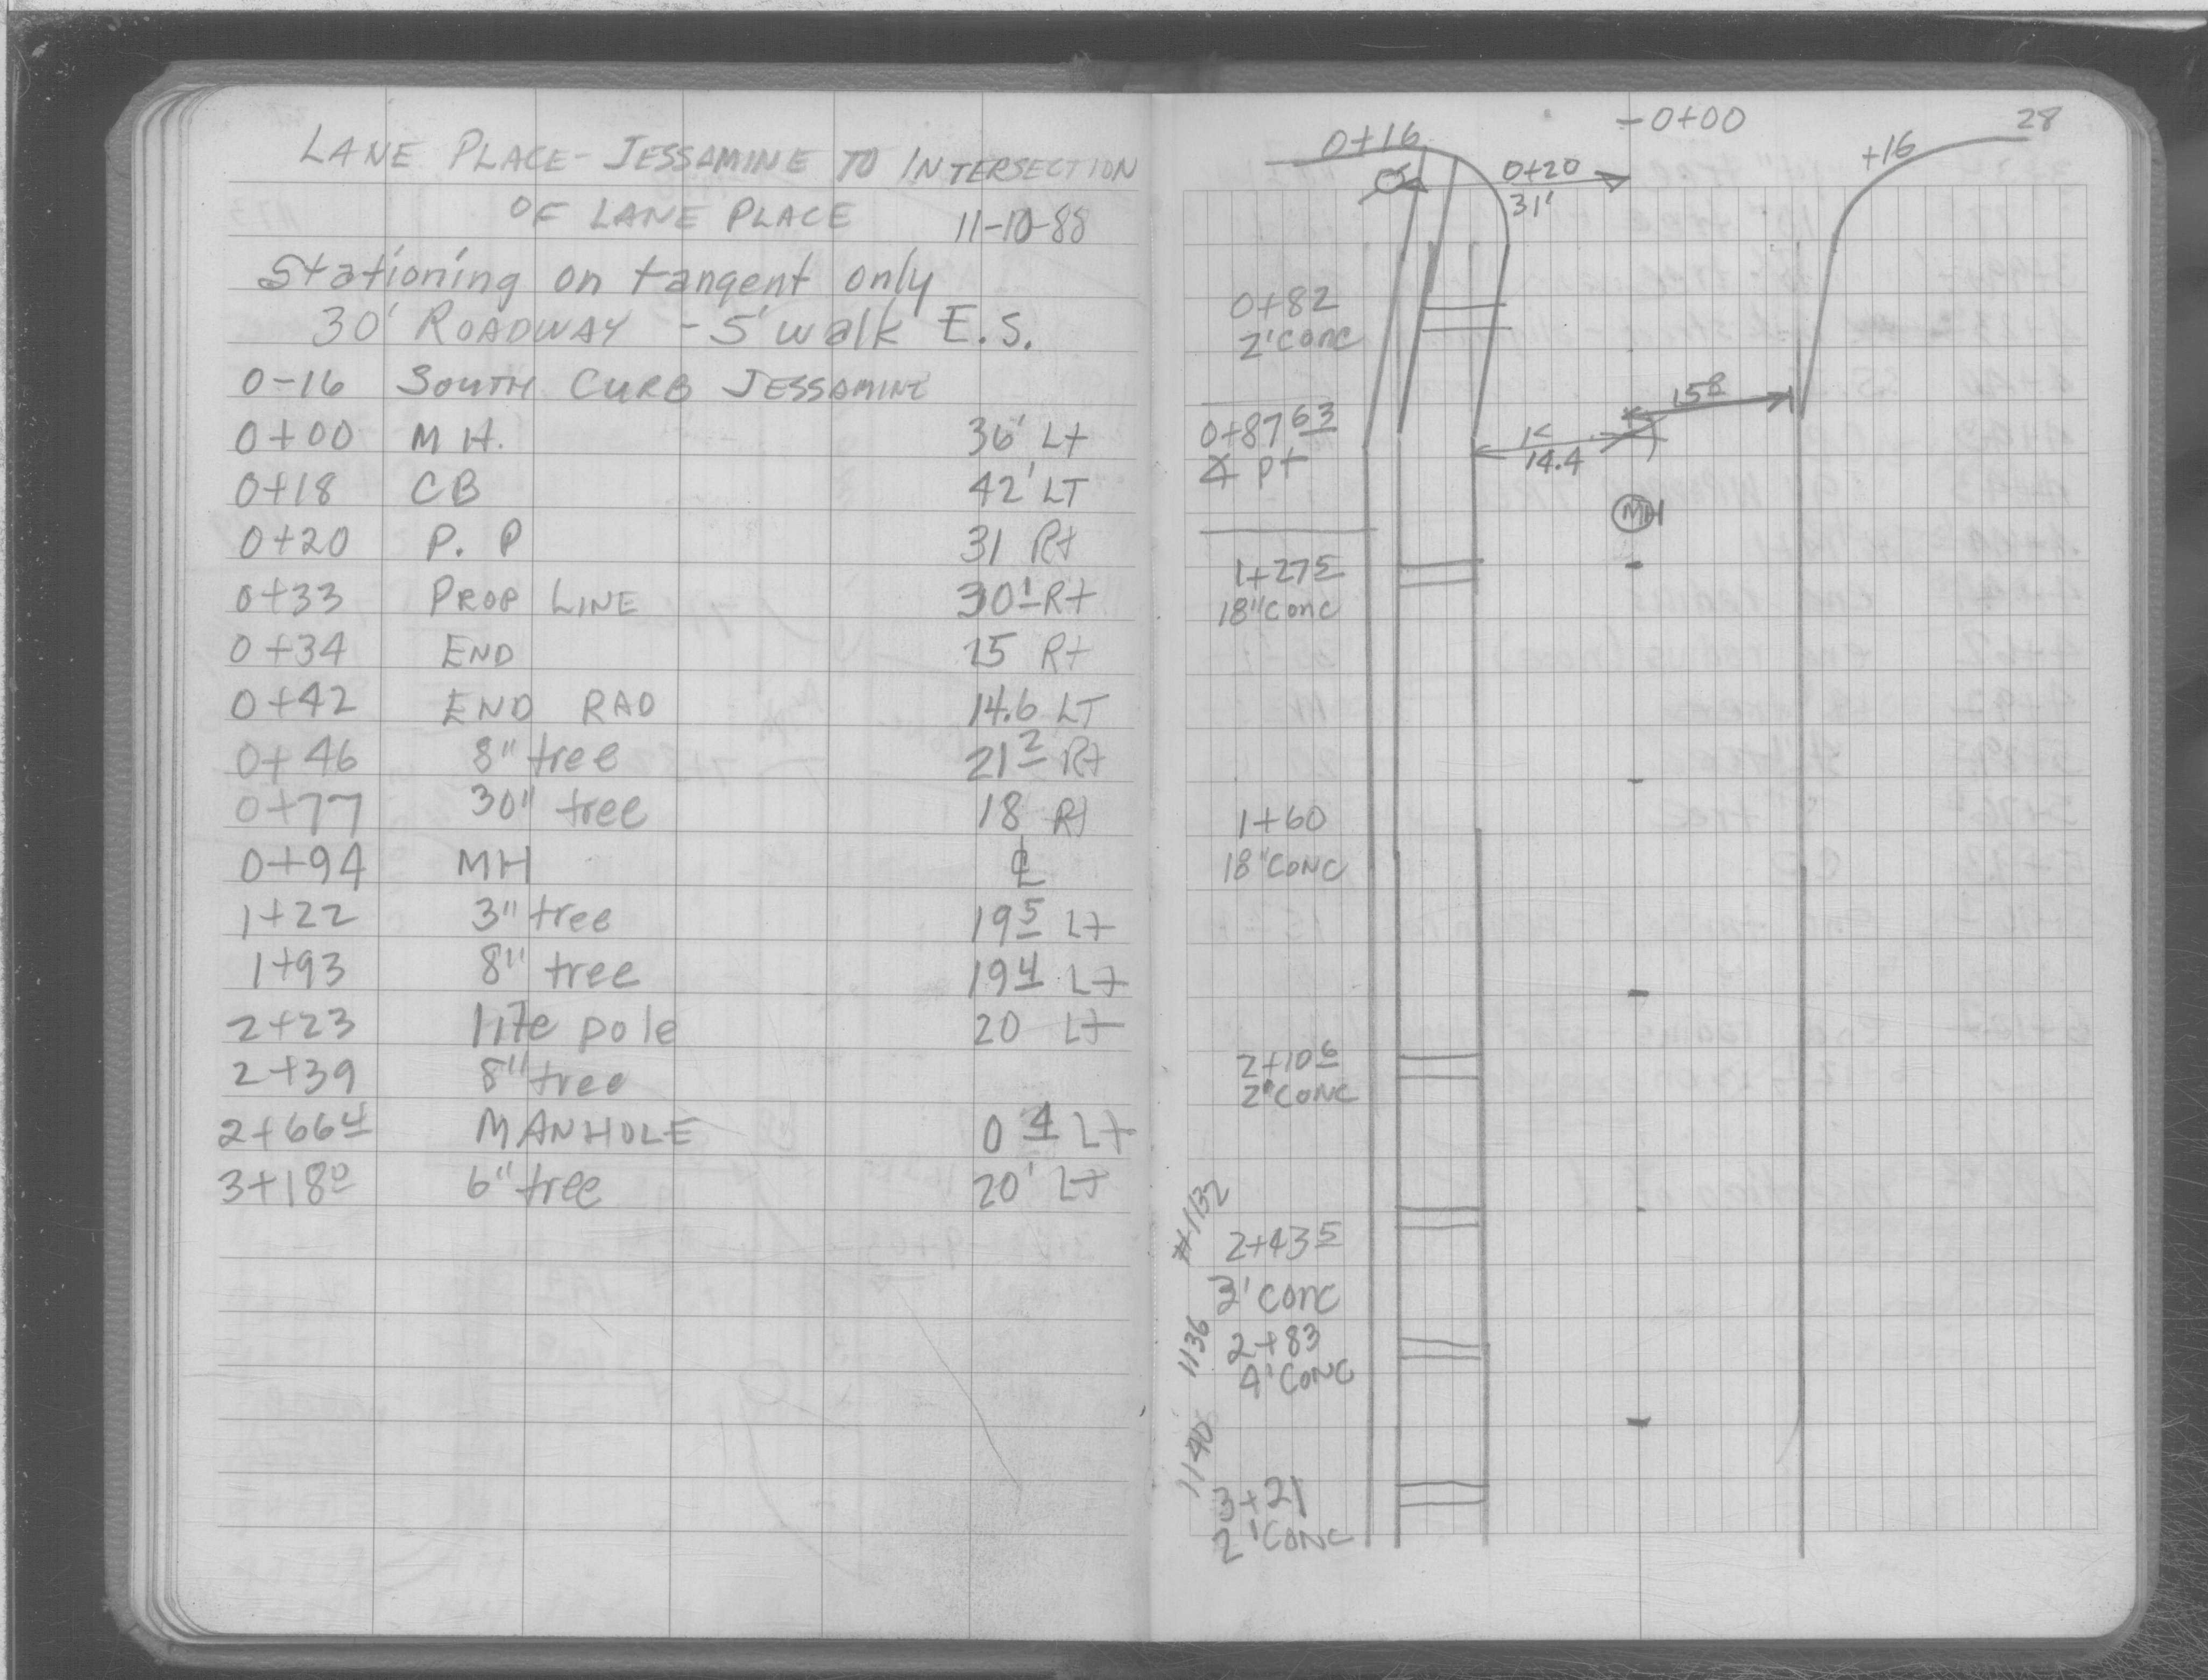 LANE PLACE - JESSAMINE TO INTERSECTION
OF LANE PLACE 11-10-88
Stationing on tangent only
30' ROADWAY - 5' walk E.S.
0-16 SOUTH CURB JESSAMINE
0+00 M H. 36' Lt
0+18 CB 42' LT
0+20 P. P 31 Rt
0+33 PROP LINE 30¹ Rt
0+34 END 15 Rt
0+42 END RAD 14.6 LT
0+46 8" tree 21² Rt
0+77 30" tree 18 Rt
0+94 MH ℄
1+22 3" tree 19⁵ Lt
1+93 8" tree 19⁴ Lt
2+23 lite pole 20 Lt
2+39 8" tree
2+66⁴ MANHOLE 0⁴ Lt
3+18⁰ 6" tree 20' Lt
28
-0+00
0+16
+16
0+20
31'
0+82
2' conc
15⁸
0+87⁶³
∡ pt
14.4
MH
1+27⁵
18" conc
1+60
18" CONC
2+10⁶
2' CONC
#1132
2+43⁵
3' conc
1136
2+83
4' CONC
1140
3+21
2' CONC